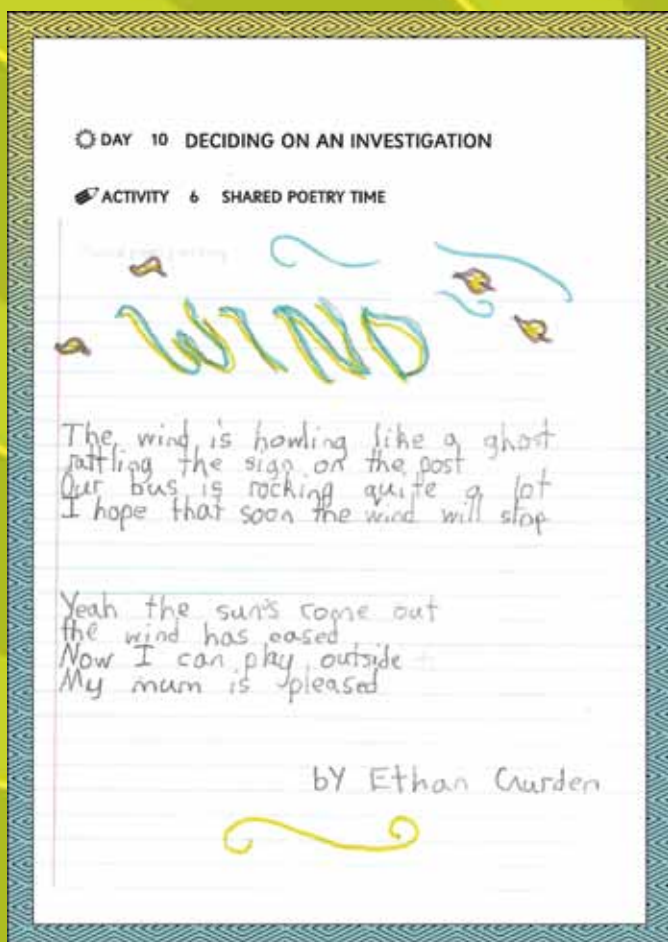 DAY 10 DECIDING ON AN INVESTIGATION
ACTIVITY 6 SHARED POETRY TIME
WIND
The wind is howling like a ghost
rattling the sign on the post
Our bus is rocking quite a lot
I hope that soon the wind will stop
Yeah the sun's come out
the wind has eased
Now I can play outside
My mum is pleased
by Ethan